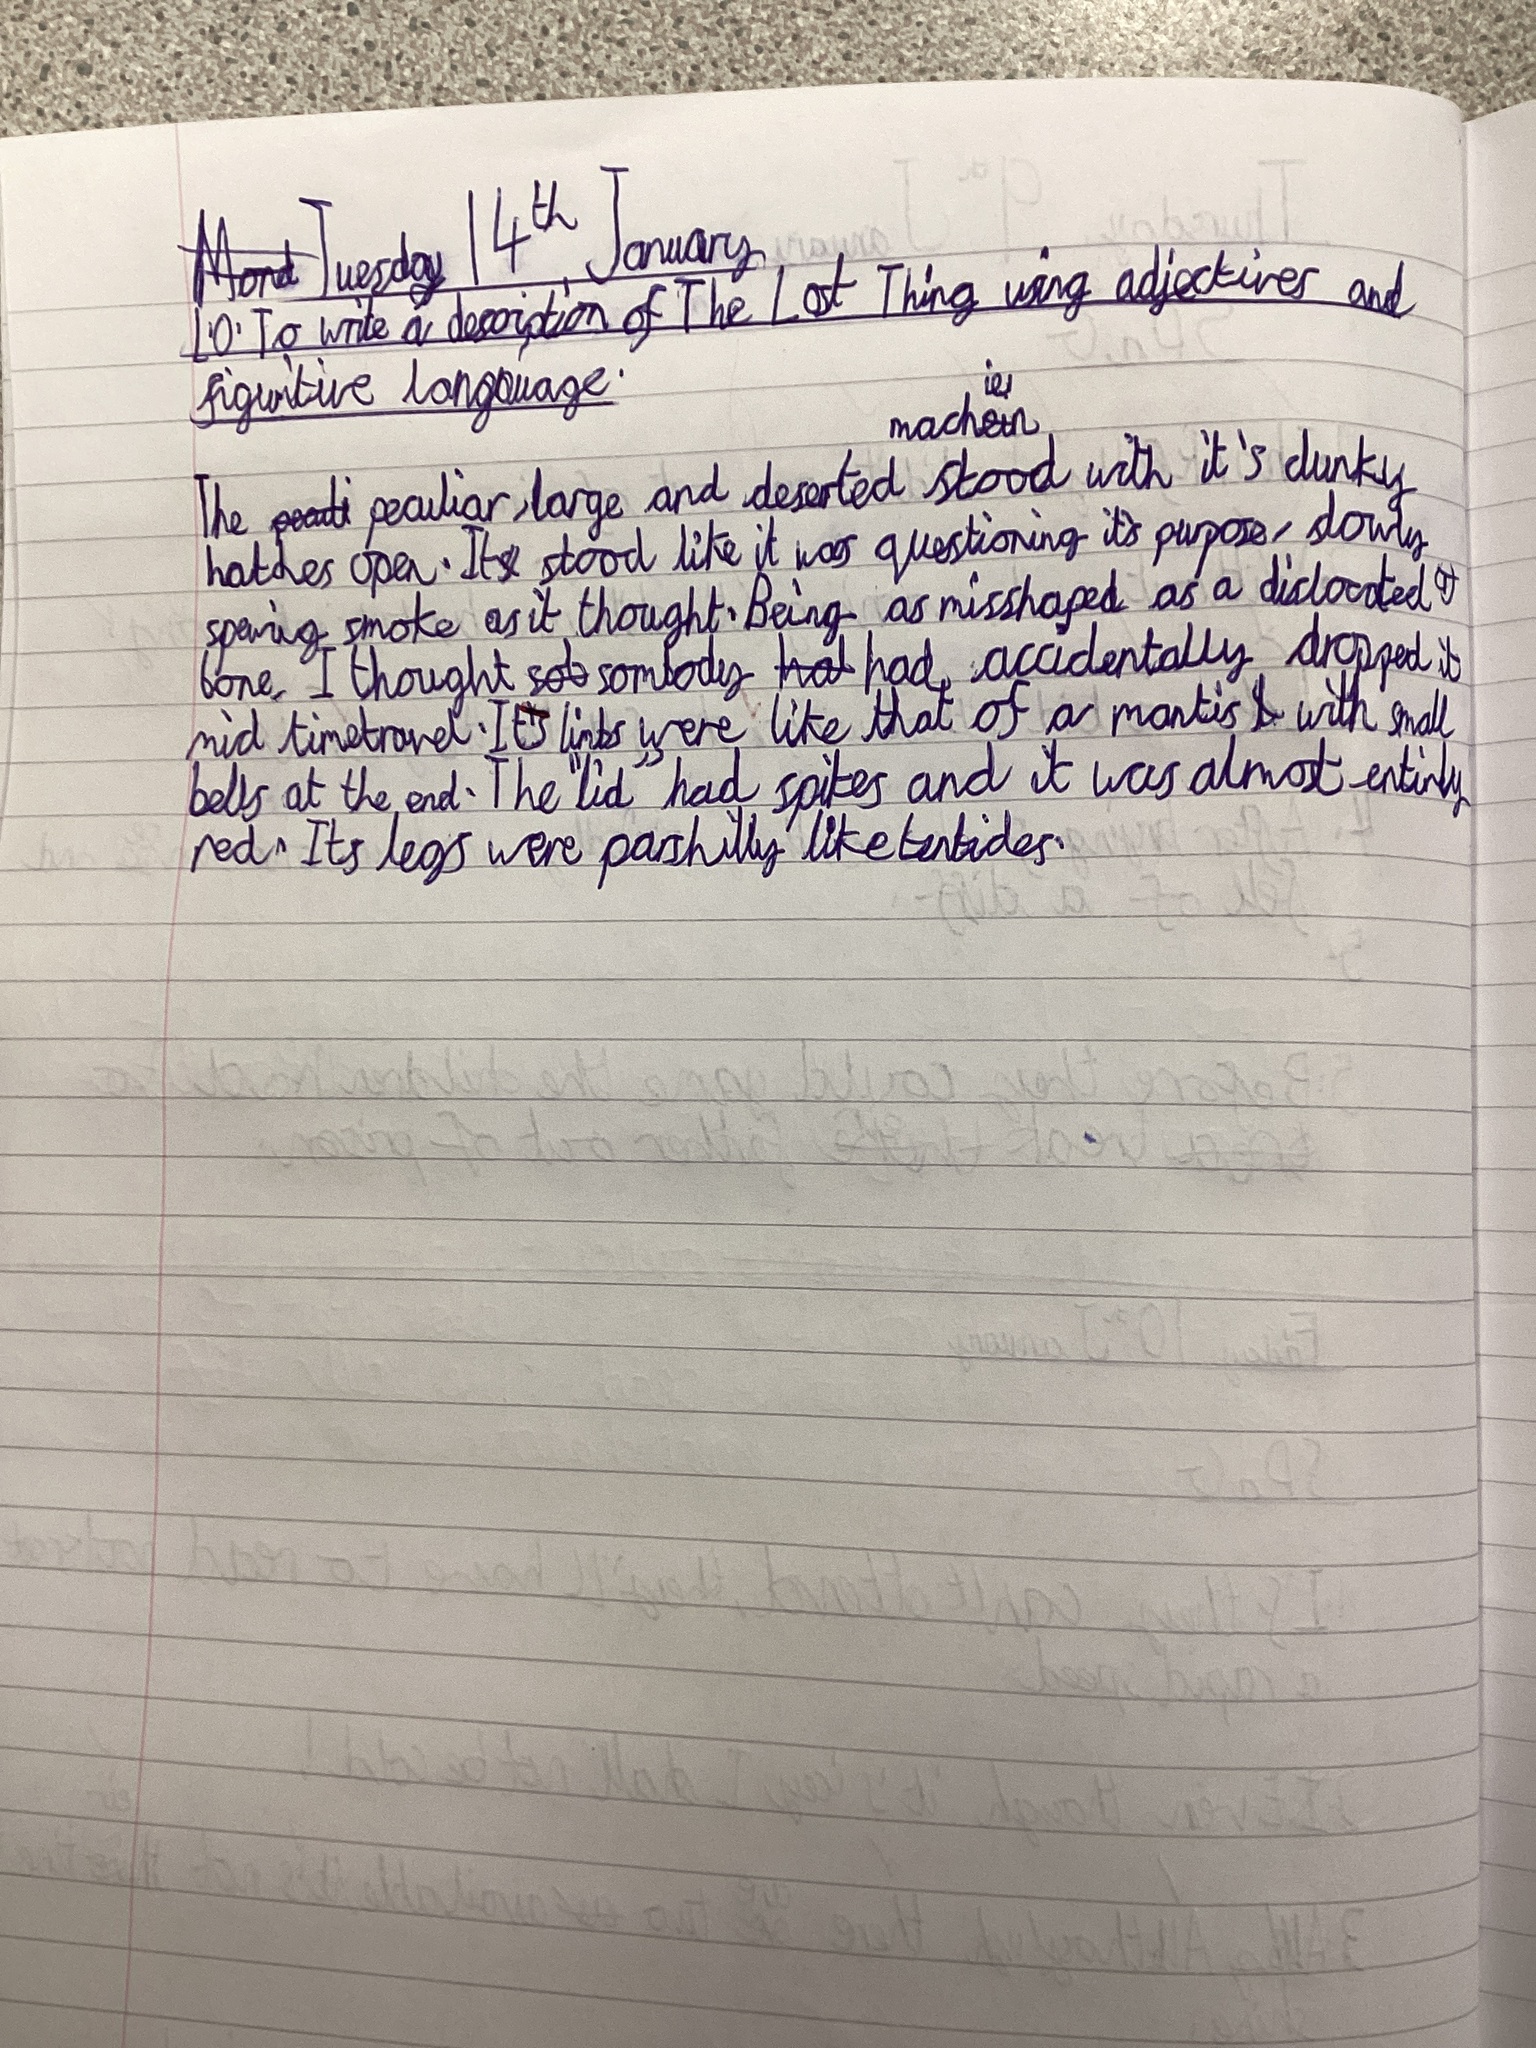 Mond Tuesday 14th January
L.O. To write a description of The Lost Thing using adjectives and
figuritive langquage.
machein
ies
The peculiar, large and deserted stood with it's clunky
hatches open. It stood like it was questioning it's purpose, slowly
spewing smoke as it thought. Being as misshaped as a dislocated
bone, I thought sob sombody hat had accidentally dropped it
mid timetravel. It's limbs were like that of a mantis with small
bells at the end. The "lid" had spikes and it was almost entirly
red. Its legs were parshilly like tenticles.